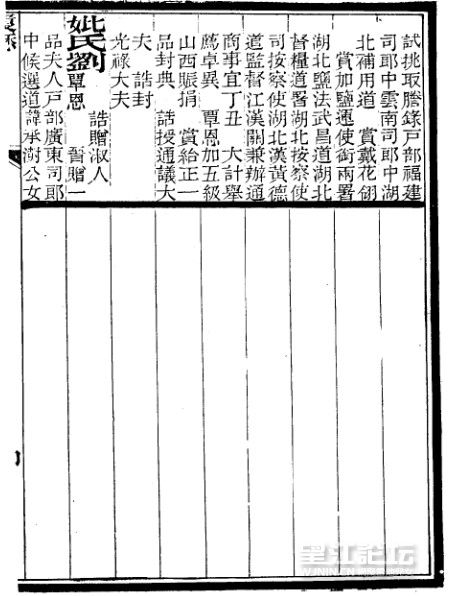 試挑取謄錄戶部福建
司郎中雲南司郎中湖
北補用道　賞戴花翎
賞加鹽運使銜兩署
湖北鹽法武昌道湖北
督糧道署湖北按察使
司按察使湖北漢黃德
道監督江漢關兼辦通
商事宜丁丑　大計舉
薦卓異　覃恩加五級
山西賑捐　賞給正一
品封典　誥授通議大
夫　誥封
光祿大夫
妣氏劉覃恩　誥贈淑人　晉贈一
品夫人戶部廣東司郎
中候選道諱承澍公女